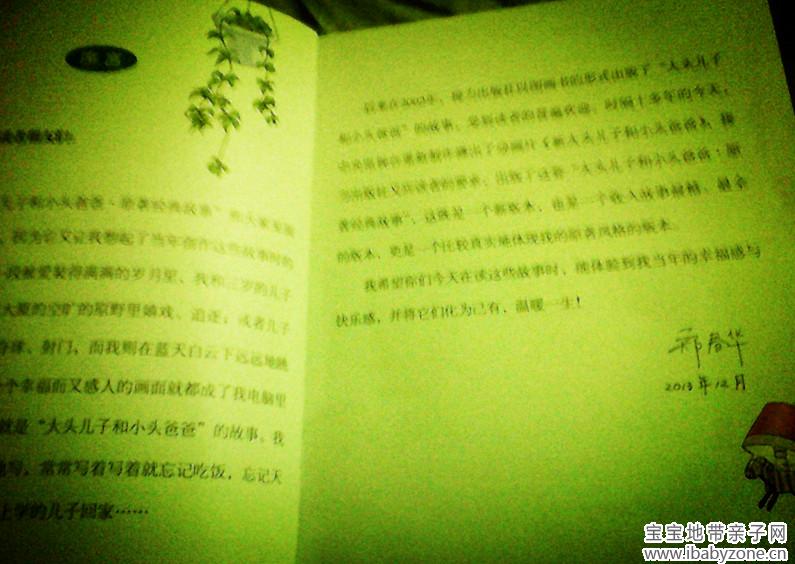 序言
子和小头爸爸·原著经典故事”和大家见面
，因为它又让我想起了当年创作这些故事时的
我被爱装得满满的岁月里，我和三岁的儿子
大厦的空旷的原野里嬉戏、追逐；或者儿子
球、射门，而我则在蓝天白云下远远地跳
个幸福而又感人的画面就都成了我电脑里
就是“大头儿子和小头爸爸”的故事。我
地写，常常写着写着就忘记吃饭，忘记天
上学的儿子回家……
后来在2002年，接力出版社以图画书的形式出版了“大头儿子
和小头爸爸”的故事，受到读者的普遍欢迎。时隔十多年的今天，
中央电视台重新制作播出了动画片《新大头儿子和小头爸爸》，接
力出版社又应读者的要求，出版了这套“大头儿子和小头爸爸·原
著经典故事”，这既是一个新版本，也是一个收入故事最精、最全
的版本，更是一个比较真实地体现我的原著风格的版本。
我希望你们今天在读这些故事时，能体验到我当年的幸福感与
快乐感，并将它们化为己有，温暖一生！
郑春华
2013年12月
宝宝地带亲子网
www.ibabyzone.cn